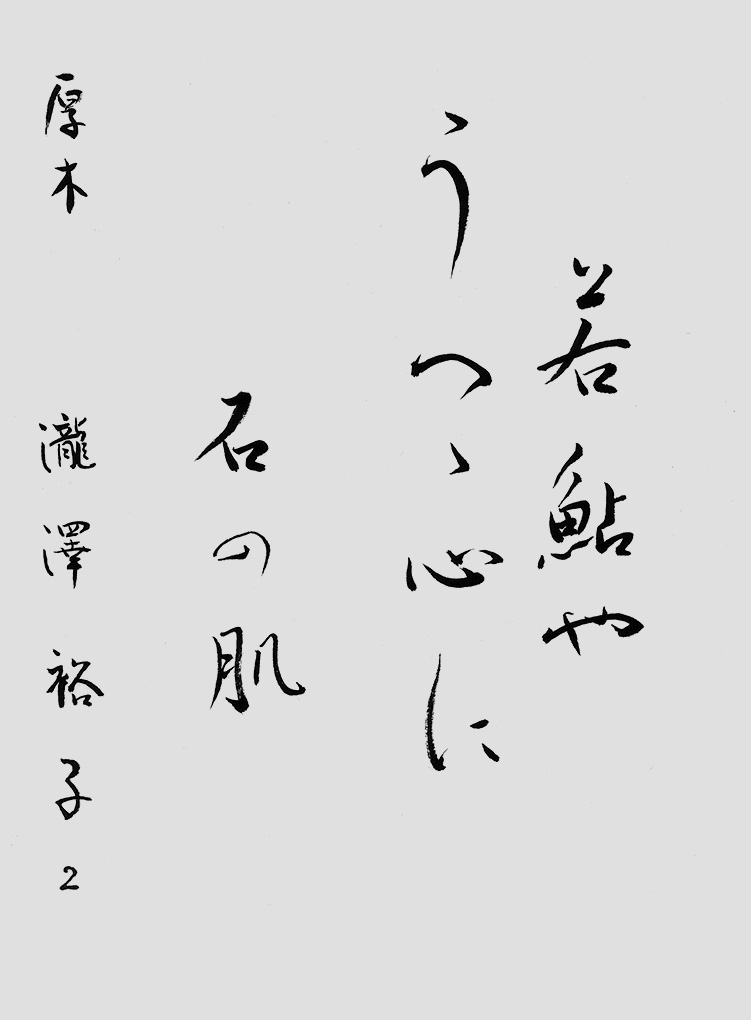 若鮎や
うつゝ心に
石の肌
厚木 瀧澤裕子2